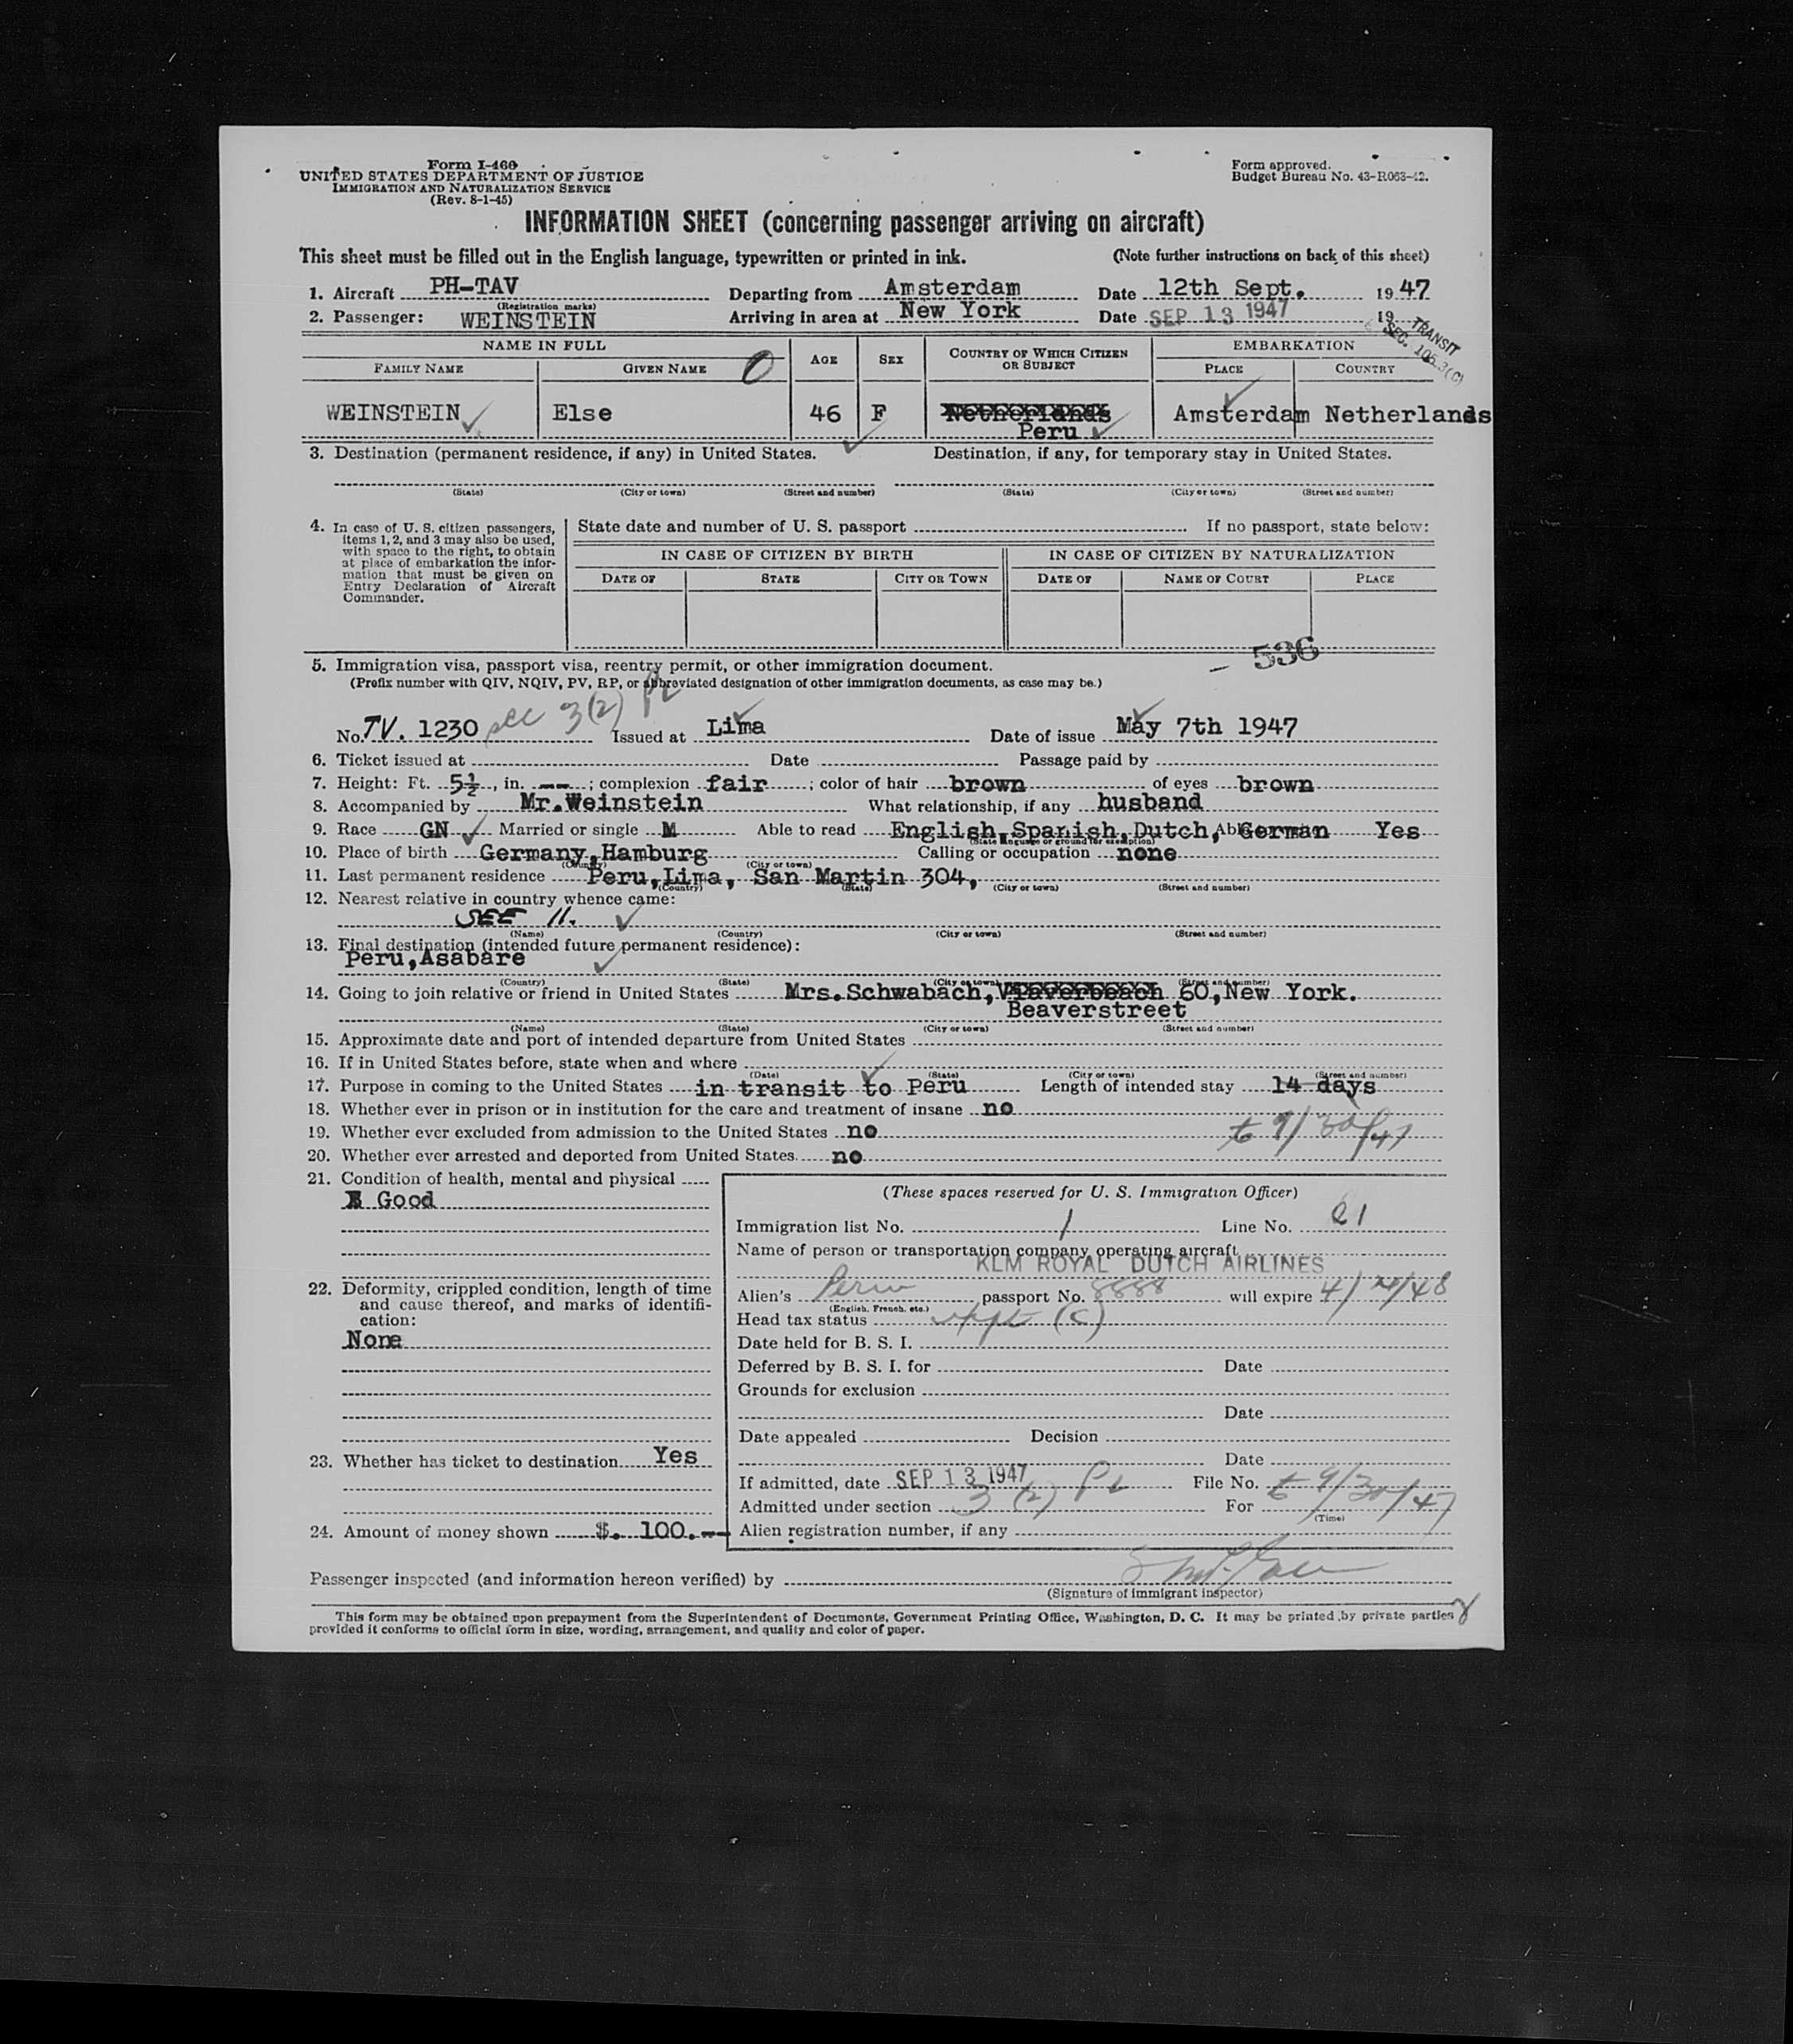 Form I-466
UNITED STATES DEPARTMENT OF JUSTICE
IMMIGRATION AND NATURALIZATION SERVICE
(Rev. 8-1-45)
Form approved.
Budget Bureau No. 43-R063-42.
INFORMATION SHEET (concerning passenger arriving on aircraft)
This sheet must be filled out in the English language, typewritten or printed in ink. (Note further instructions on back of this sheet)
1. Aircraft PH-TAV Departing from Amsterdam Date 12th Sept. 1947
(Registration marks)
2. Passenger: WEINSTEIN Arriving in area at New York Date SEP 13 1947 19
TRANSIT
SEC. 105.3(C)
NAME IN FULL AGE SEX COUNTRY OF WHICH CITIZEN OR SUBJECT EMBARKATION
FAMILY NAME GIVEN NAME O PLACE COUNTRY
WEINSTEIN Else 46 F Netherlands Amsterdam Netherlands
Peru
3. Destination (permanent residence, if any) in United States. Destination, if any, for temporary stay in United States.
(State) (City or town) (Street and number) (State) (City or town) (Street and number)
4. In case of U. S. citizen passengers, items 1, 2, and 3 may also be used, with space to the right, to obtain at place of embarkation the information that must be given on Entry Declaration of Aircraft Commander.
State date and number of U. S. passport If no passport, state below:
IN CASE OF CITIZEN BY BIRTH IN CASE OF CITIZEN BY NATURALIZATION
DATE OF STATE CITY OR TOWN DATE OF NAME OF COURT PLACE
- 536
5. Immigration visa, passport visa, reentry permit, or other immigration document.
(Prefix number with QIV, NQIV, PV, RP, or abbreviated designation of other immigration documents, as case may be.)
No. TV. 1230 sec 3(2) PL Issued at Lima Date of issue May 7th 1947
6. Ticket issued at Date Passage paid by
7. Height: Ft. 5½, in. --; complexion fair; color of hair brown of eyes brown
8. Accompanied by Mr.Weinstein What relationship, if any husband
9. Race GN Married or single M Able to read English,Spanish,Dutch, German Yes
(State language or ground for exemption)
10. Place of birth Germany,Hamburg Calling or occupation none
(Country) (City or town)
11. Last permanent residence Peru,Lima, San Martin 304,
(Country) (State) (City or town) (Street and number)
12. Nearest relative in country whence came:
SEE 11.
(Name) (Country) (City or town) (Street and number)
13. Final destination (intended future permanent residence):
Peru,Asabare
(Country) (State) (City or town) (Street and number)
14. Going to join relative or friend in United States Mrs.Schwabach, 60,New York.
Beaverstreet
(Name) (State) (City or town) (Street and number)
15. Approximate date and port of intended departure from United States
16. If in United States before, state when and where
(Date) (State) (City or town) (Street and number)
17. Purpose in coming to the United States in transit to Peru Length of intended stay 14 days
18. Whether ever in prison or in institution for the care and treatment of insane no
19. Whether ever excluded from admission to the United States no t 9/30/47
20. Whether ever arrested and deported from United States no
21. Condition of health, mental and physical
Good
22. Deformity, crippled condition, length of time and cause thereof, and marks of identification:
None
23. Whether has ticket to destination Yes
24. Amount of money shown $. 100.--
(These spaces reserved for U. S. Immigration Officer)
Immigration list No. 1 Line No. 21
Name of person or transportation company operating aircraft
KLM ROYAL DUTCH AIRLINES
Alien's Peru passport No. 8888 will expire
(English, French, etc.)
Head tax status (C)
Date held for B. S. I.
Deferred by B. S. I. for Date
Grounds for exclusion
Date
Date appealed Decision
Date
If admitted, date SEP 13 1947 File No.
Admitted under section 3 (2) PL For t 9/30/47
(Time)
Alien registration number, if any
Passenger inspected (and information hereon verified) by
(Signature of immigrant inspector)
This form may be obtained upon prepayment from the Superintendent of Documents, Government Printing Office, Washington, D. C. It may be printed by private parties
provided it conforms to official form in size, wording, arrangement, and quality and color of paper.